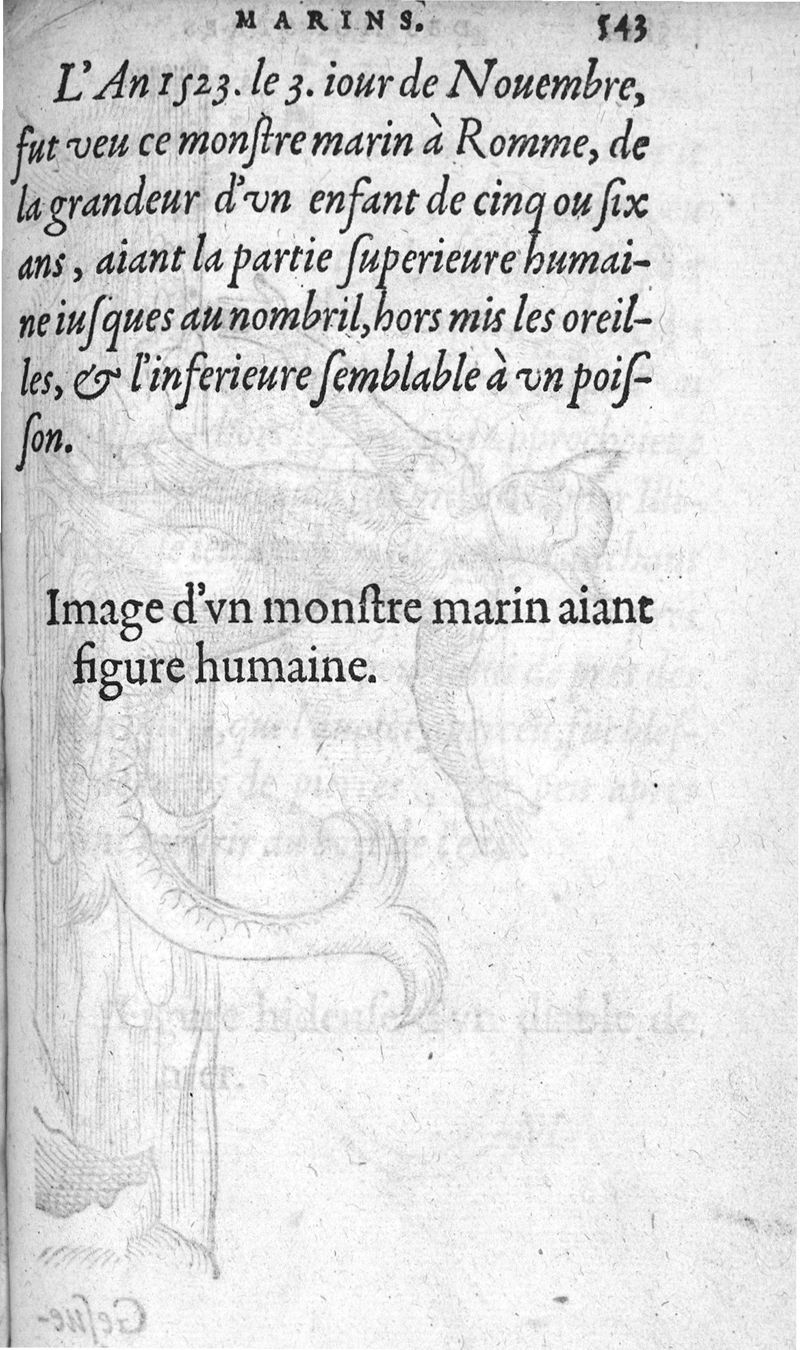 MARINS. 543
L'An 1523. le 3. iour de Nouembre,
fut veu ce monſtre marin à Romme, de
la grandeur d'vn enfant de cinq ou ſix
ans, aiant la partie ſuperieure humai-
ne iuſques au nombril, hors mis les oreil-
les, & l'inferieure ſemblable à vn poiſ-
ſon.
Image d'vn monſtre marin aiant
figure humaine.